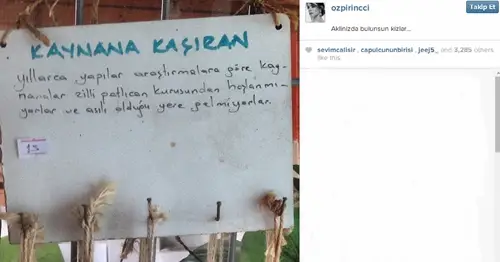 KAYNANA KAÇIRAN
yıllarca yapılar araştırmalara göre kay-
nanalar zilli patlıcan kurusundan hoşlanmı-
yorlar ve asılı olduğu yere gelmiyorlar.
15
ozpirincci
Takip Et
Aklinizda bulunsun kizlar...
sevimcalisir, capulcununbirisi, jeej5_ and 3,285 others
like this.